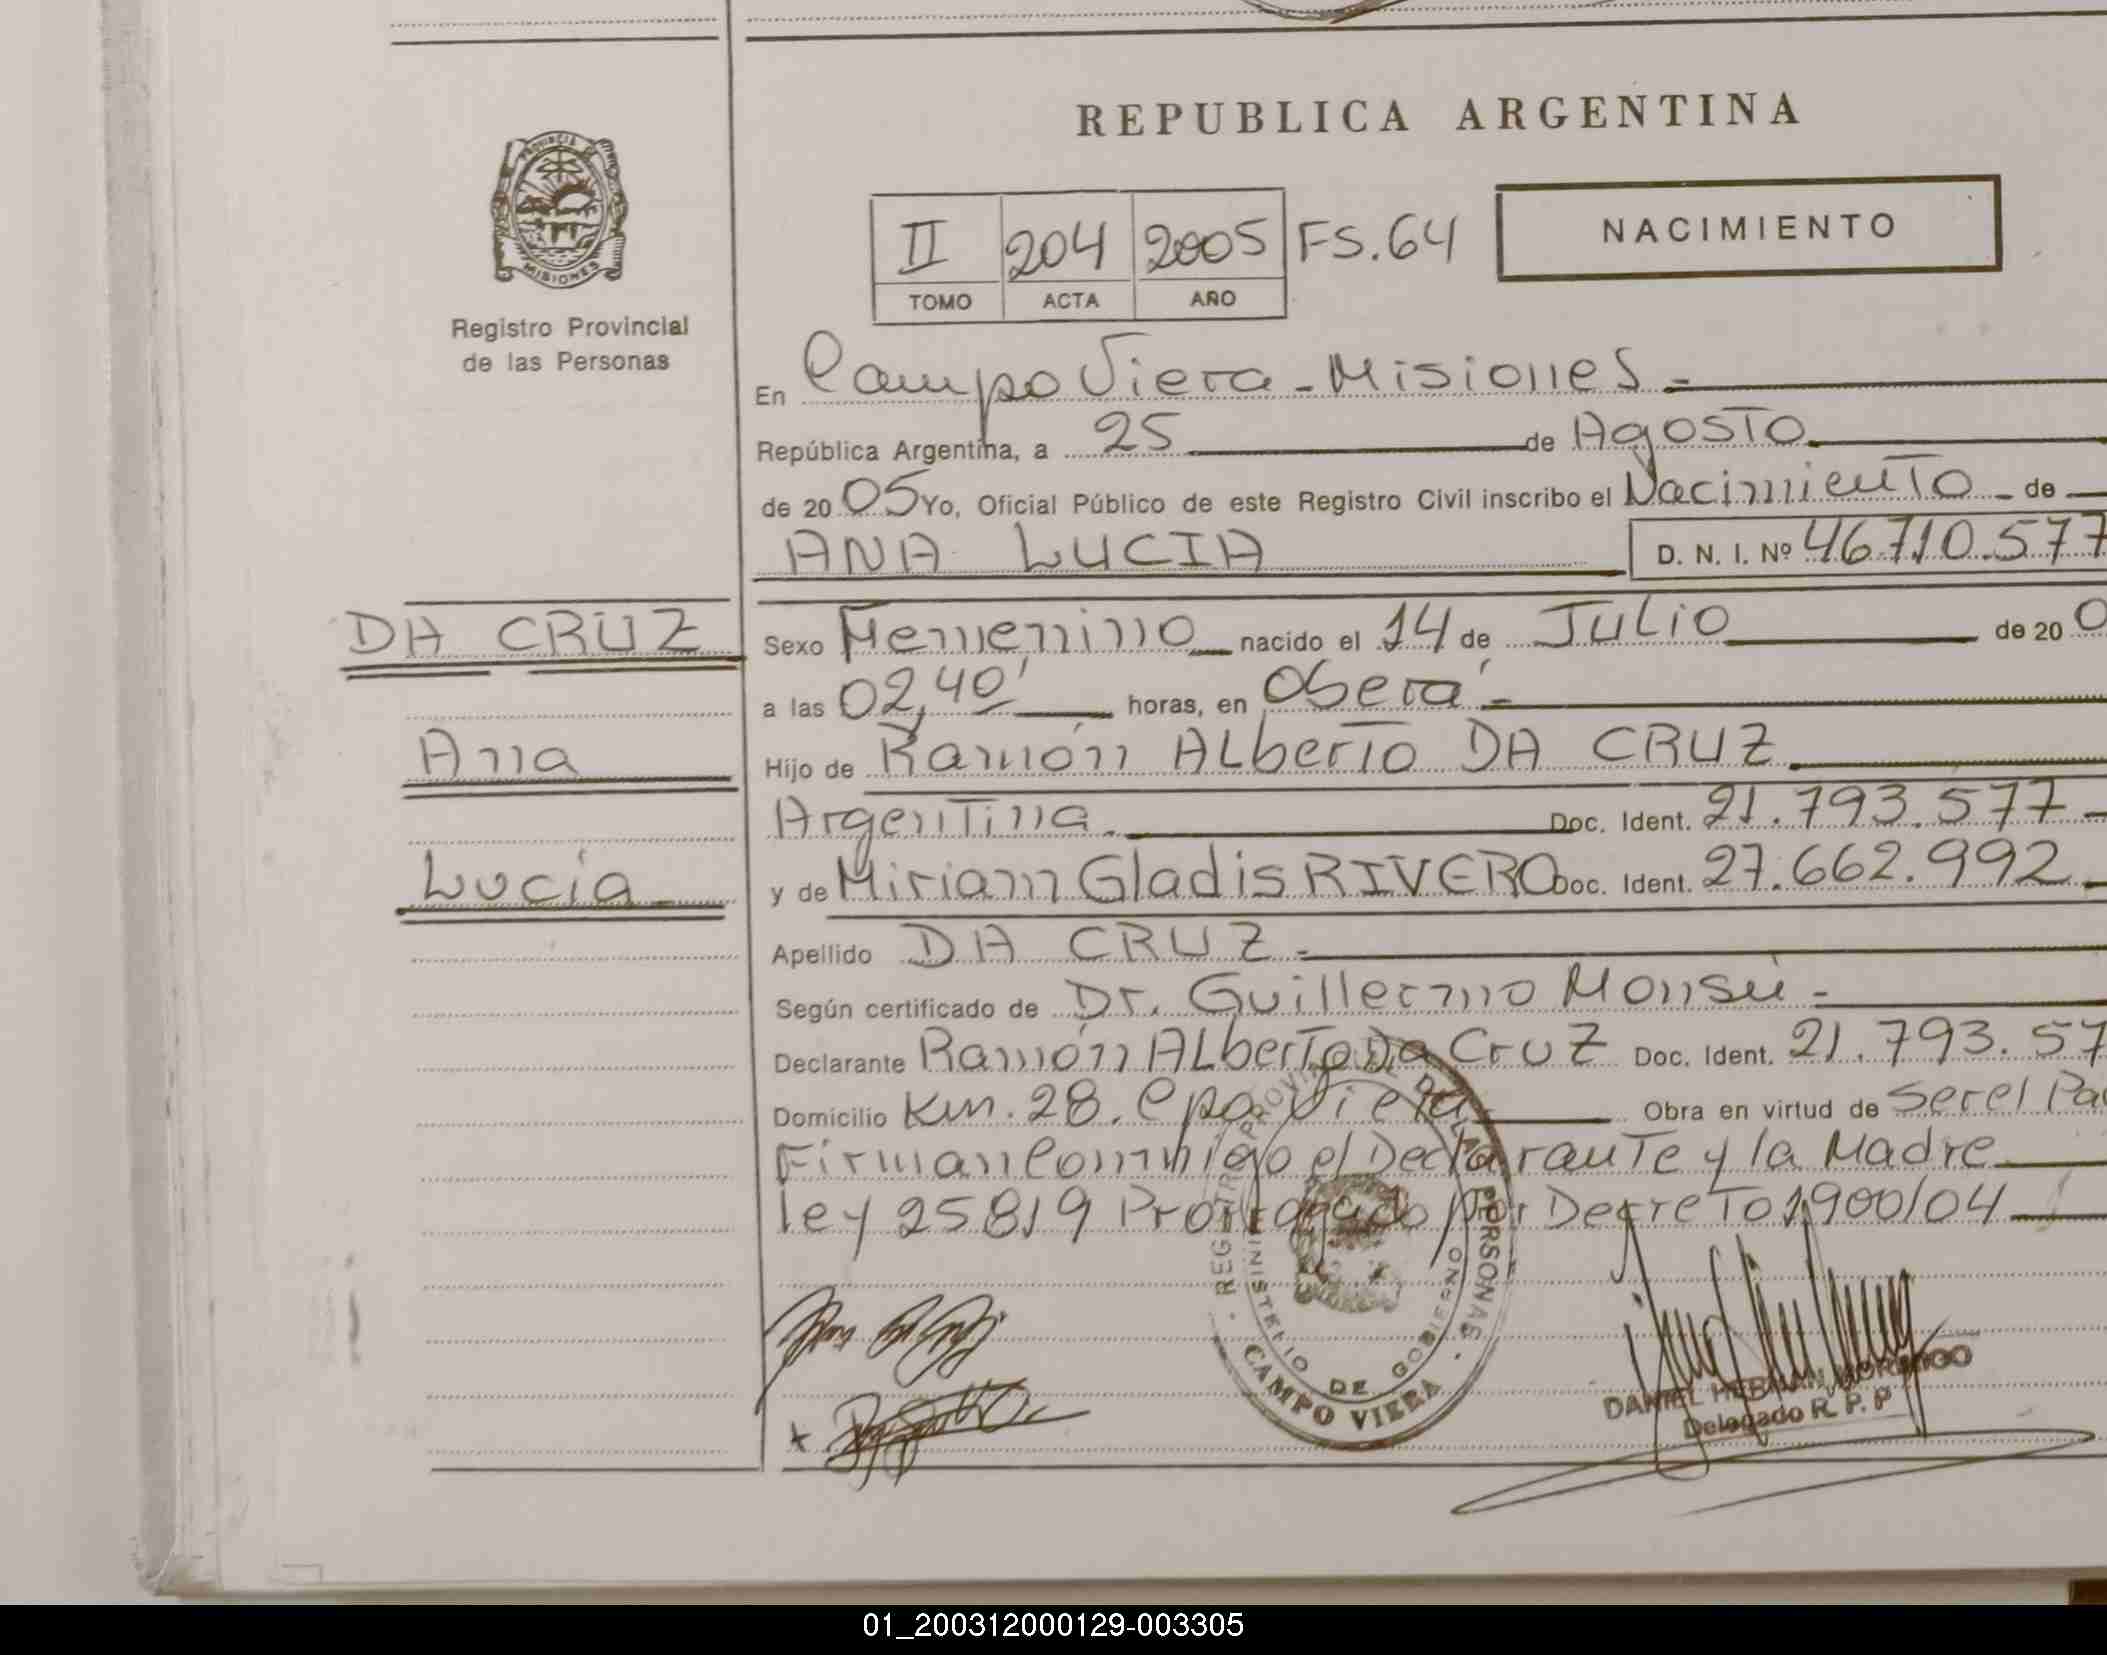 REPUBLICA ARGENTINA
PROVINCIA DE MISIONES
Registro Provincial
de las Personas
II 204 2005 FS.64
TOMO ACTA AÑO
NACIMIENTO
En Campo Viera - Misiones -
República Argentina, a 25 de Agosto
de 20 05 Yo, Oficial Público de este Registro Civil inscribo el Nacimiento - de
ANA LUCIA D. N. I. Nº 46.710.577
DA CRUZ
Sexo Femenino nacido el 14 de Julio de 20 0
a las 02,40' horas, en Oberá -
Ana
Hijo de Ramón ALberTo DA CRUZ
Argentina. Doc. Ident. 21.793.577 -
Lucía
y de Miriam Gladis RIVERO Doc. Ident. 27.662.992
Apellido DA CRUZ -
Según certificado de Dr. Guillermo Monsú -
Declarante Ramón ALberTo Da Cruz Doc. Ident. 21.793.57
Domicilio Km. 28. Cpo Viera Obra en virtud de Ser el Pa
Firman Conmigo el Declarante y la Madre
ley 25819 Prorrogado por Decreto 1900/04
REGISTRO PROVINCIAL DE LAS PERSONAS
MINISTERIO DE GOBIERNO
CAMPO VIERA
DANIEL HERNAN
Delegado R. P. P
01_200312000129-003305